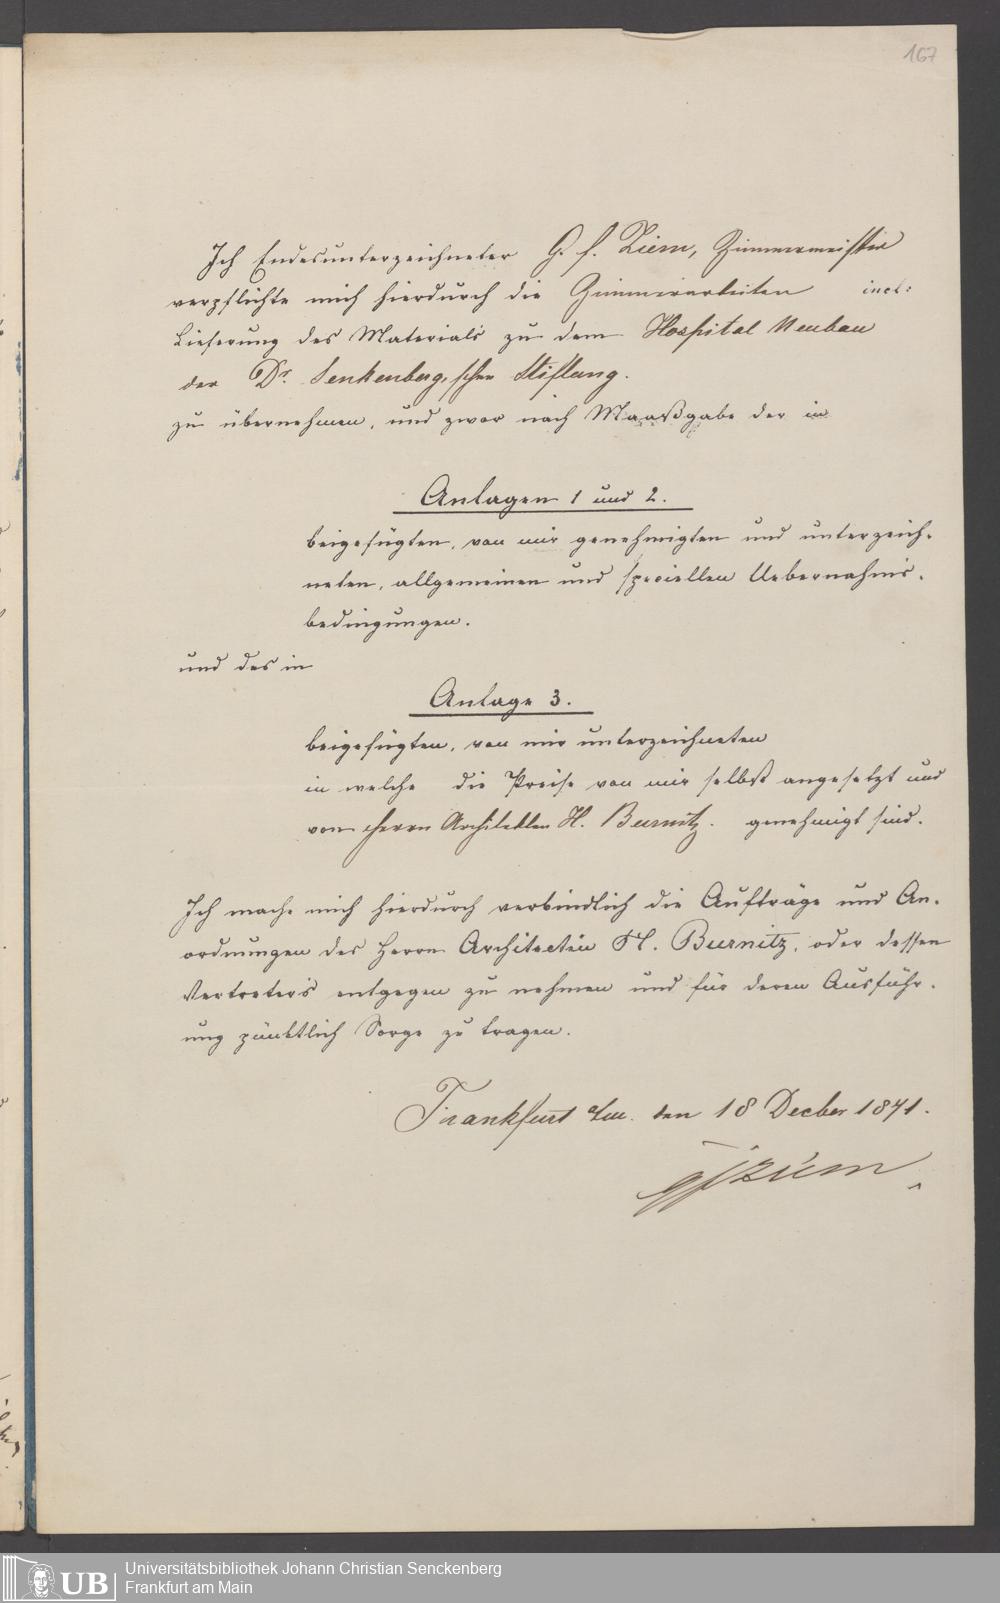 167
Ich Endesunterzeichneter G. f. Ziem, Zimmermeister
verpflichte mich hierdurch die Zimmerarbeiten incl:
Lieferung des Materials zu dem Hospital Neubau
der Dr. Senkenberg'schen Stiftung.
zu übernehmen, und zwar nach Maaßgabe der in
Anlagen 1 und 2.
beigefügten, von mir genehmigten und unterzeich-
neten, allgemeinen und speciellen Uebernahms-
bedingungen.
und des in
Anlage 3.
beigefügten, von mir unterzeichneten
in welche die Preise von mir selbst angesetzt und
von Herrn Architekten H. Burnitz. genehmigt sind.
Ich mache mich hierdurch verbindlich die Aufträge und An-
ordnungen des Herrn Architecten H. Burnitz, oder dessen
Vertreters entgegen zu nehmen und für deren Ausführ-
ung pünktlich Sorge zu tragen.
Frankfurt a/m. den 18 Decber 1871.
UB
Universitätsbibliothek Johann Christian Senckenberg
Frankfurt am Main